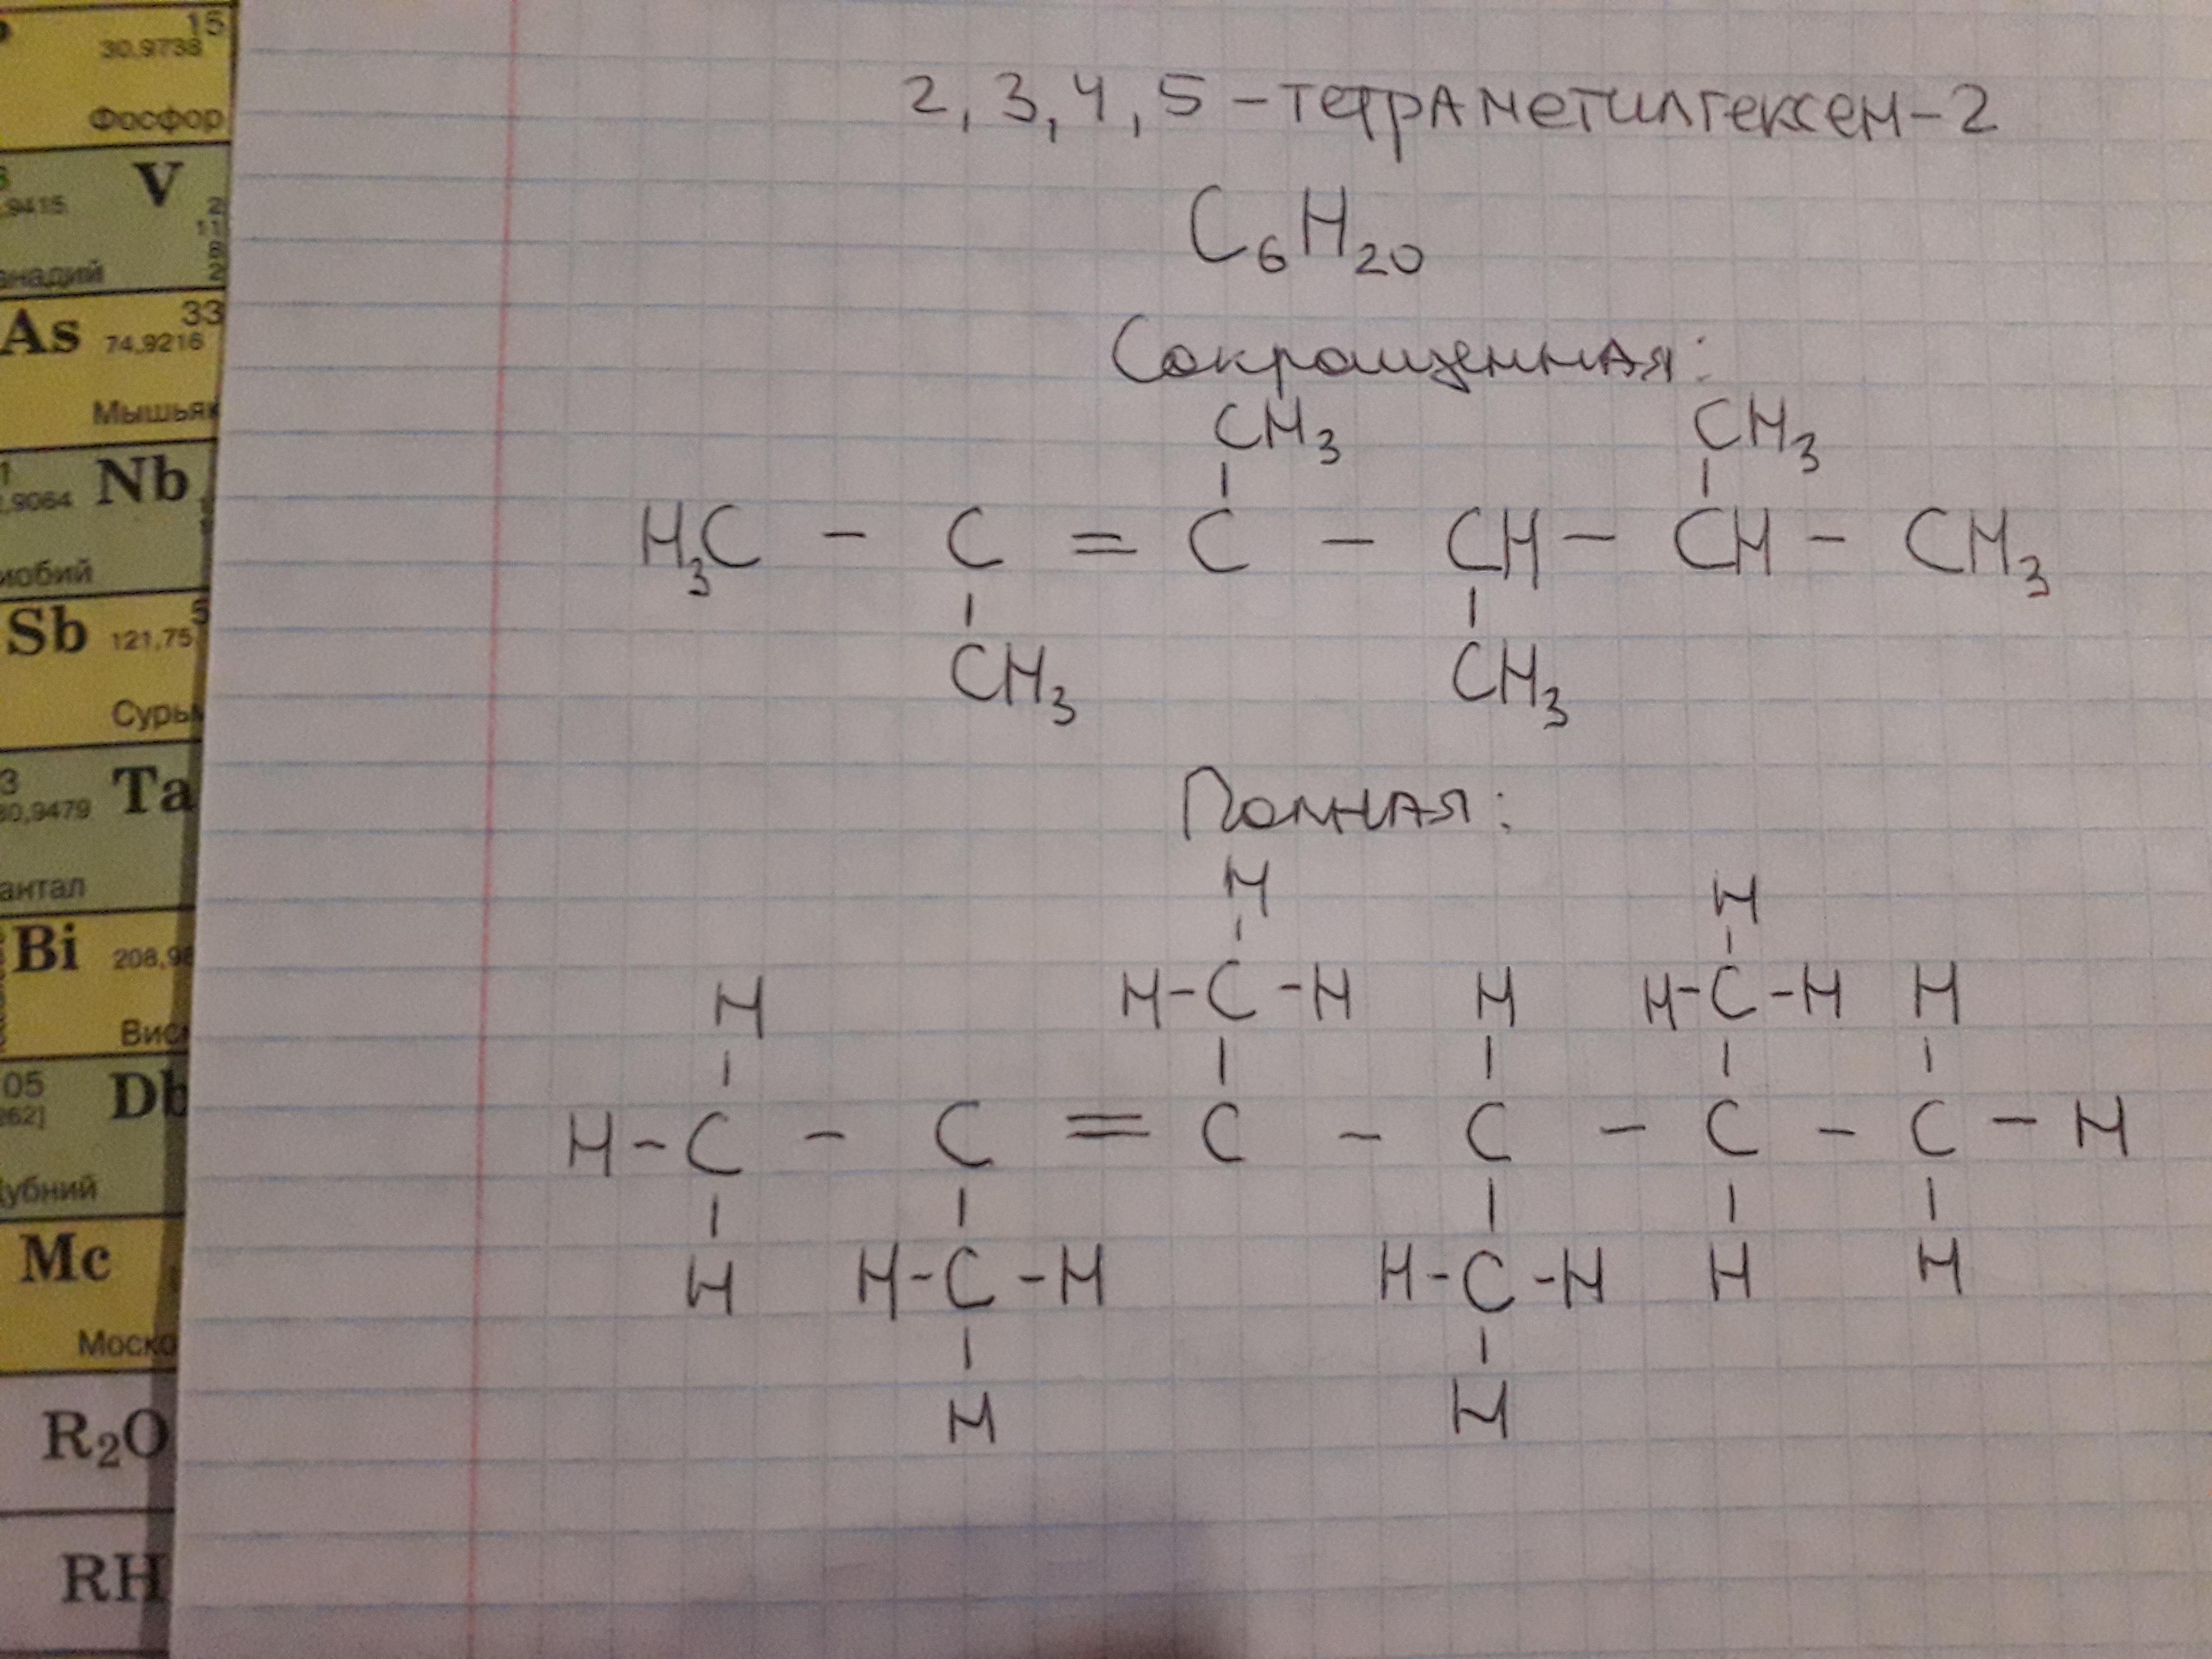 15
30,9738
Фосфор
V
,9415
2
11
8
2
анадий
As
33
74,9216
Мышьяк
Nb
,9064
иобий
Sb
121,75
5
Сурьм
Ta
80,9479
антал
Bi
208,98
Висм
05
Db
262]
убний
Mc
Моско
R₂O
RH
2, 3, 4, 5 – тетраметилгексен – 2
C₆H₂₀
Сокращенная:
CH₃ CH₃
H₃C – C = C – CH – CH – CH₃
CH₃ CH₃
Полная:
H H
H H–C–H H H–C–H H
H–C – C = C – C – C – C–H
H H–C–H H–C–H H H
H H